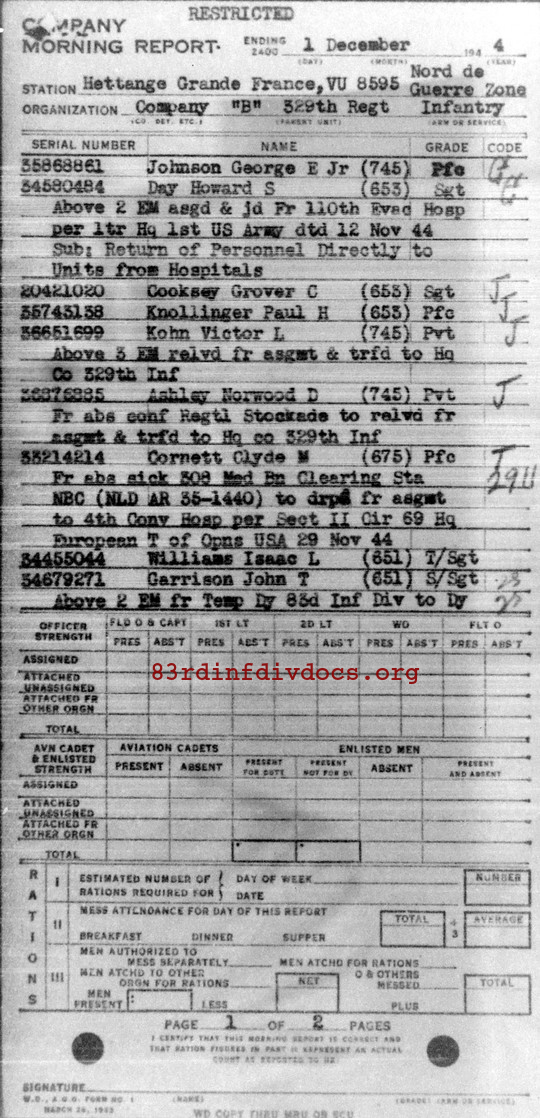 RESTRICTED
COMPANY
MORNING REPORT. ENDING 2400 1 December 194 4
(DAY) (MONTH) (YEAR)
STATION Hettange Grande France, VU 8595 Nord de Guerre Zone
ORGANIZATION Company "B" 329th Regt Infantry
(CO. DET. ETC.) (PARENT UNIT) (ARM OR SERVICE)
SERIAL NUMBER NAME GRADE CODE
35868861 Johnson George E Jr (745) Pfc
34580484 Day Howard S (653) Sgt
Above 2 EM asgd & jd Fr 110th Evac Hosp
per ltr Hq 1st US Army dtd 12 Nov 44
Sub: Return of Personnel Directly to
Units from Hospitals
20421020 Cooksey Grover C (653) Sgt J
35743138 Knollinger Paul H (653) Pfc J
36651699 Kohn Victor L (745) Pvt J
Above 3 EM relvd fr asgmt & trfd to Hq
Co 329th Inf
36876885 Ashley Norwood D (745) Pvt J
Fr abs conf Regtl Stockade to relvd fr
asgmt & trfd to Hq co 329th Inf
33214214 Cornett Clyde M (675) Pfc
Fr abs sick 308 Med Bn Clearing Sta
NBC (NLD AR 35-1440) to drpd fr asgmt
to 4th Conv Hosp per Sect II Cir 69 Hq
European T of Opns USA 29 Nov 44
34455044 Williams Isaac L (651) T/Sgt
34679271 Garrison John T (651) S/Sgt
Above 2 EM fr Temp Dy 83d Inf Div to Dy
OFFICER STRENGTH FLD O & CAPT 1ST LT 2D LT WO FLT O
PRES ABS'T PRES ABS'T PRES ABS'T PRES ABS'T PRES ABS'T
ASSIGNED
83rdinfdivdocs.org
ATTACHED UNASSIGNED
ATTACHED FR OTHER ORGN
TOTAL
AVN CADET & ENLISTED STRENGTH AVIATION CADETS ENLISTED MEN
PRESENT ABSENT PRESENT FOR DUTY PRESENT NOT FOR DY ABSENT PRESENT AND ABSENT
ASSIGNED
ATTACHED UNASSIGNED
ATTACHED FR OTHER ORGN
TOTAL
RATIONS
I ESTIMATED NUMBER OF RATIONS REQUIRED FOR DAY OF WEEK DATE NUMBER
II MESS ATTENDANCE FOR DAY OF THIS REPORT
BREAKFAST DINNER SUPPER TOTAL ÷ 3 AVERAGE
III MEN AUTHORIZED TO MESS SEPARATELY MEN ATCHD FOR RATIONS
MEN ATCHD TO OTHER ORGN FOR RATIONS NET O & OTHERS MESSED TOTAL
MEN PRESENT LESS PLUS
PAGE 1 OF 2 PAGES
I CERTIFY THAT THIS MORNING REPORT IS CORRECT AND
THAT RATION FIGURES IN PART III REPRESENT AN ACTUAL
COUNT AS REPORTED TO ME
SIGNATURE
W.D., A.G.O. FORM NO. 1 (NAME) (GRADE) (ARM OR SERVICE)
MARCH 26, 1943
WD COPY THRU MRU OR SCU